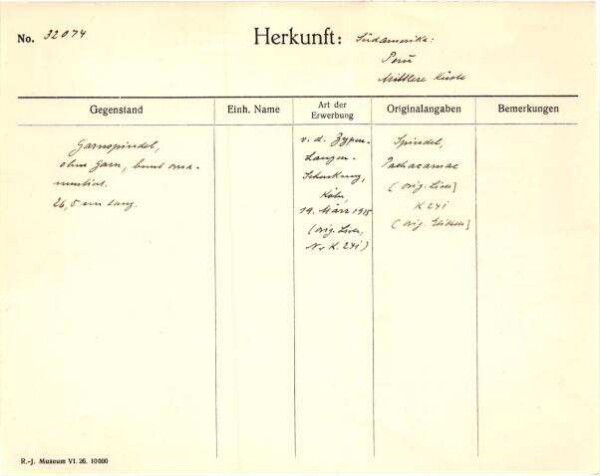 No. 32074
Herkunft: Südamerika:
Perú
Mittlere Küste
Gegenstand
Einh. Name
Art der
Erwerbung
Originalangaben
Bemerkungen
Garnspindel,
ohne Garn, bunt orna-
mentiert.
26,5 cm lang.
v. d. Zypen-
Langen-
Schenkung,
Köln,
19. März 1915
(orig. Liste,
Nr K. 241)
Spindel,
Pachacamac
(orig. Liste]
K 241
(orig. Etikett]
R.-J. Museum VI. 26. 10000